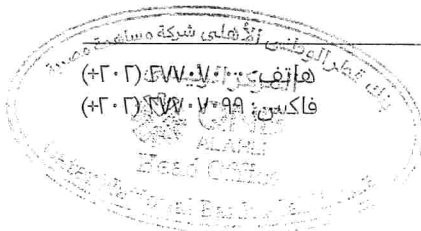 بنك قطر الوطني الأهلي شركة مساهمة مصرية
هاتف: ٢٧٧٠٧٠٠٠ (٢٠٢+)
فاكس: ٢٧٧٠٧٠٩٩ (٢٠٢+)
ALAHLI
Head Office